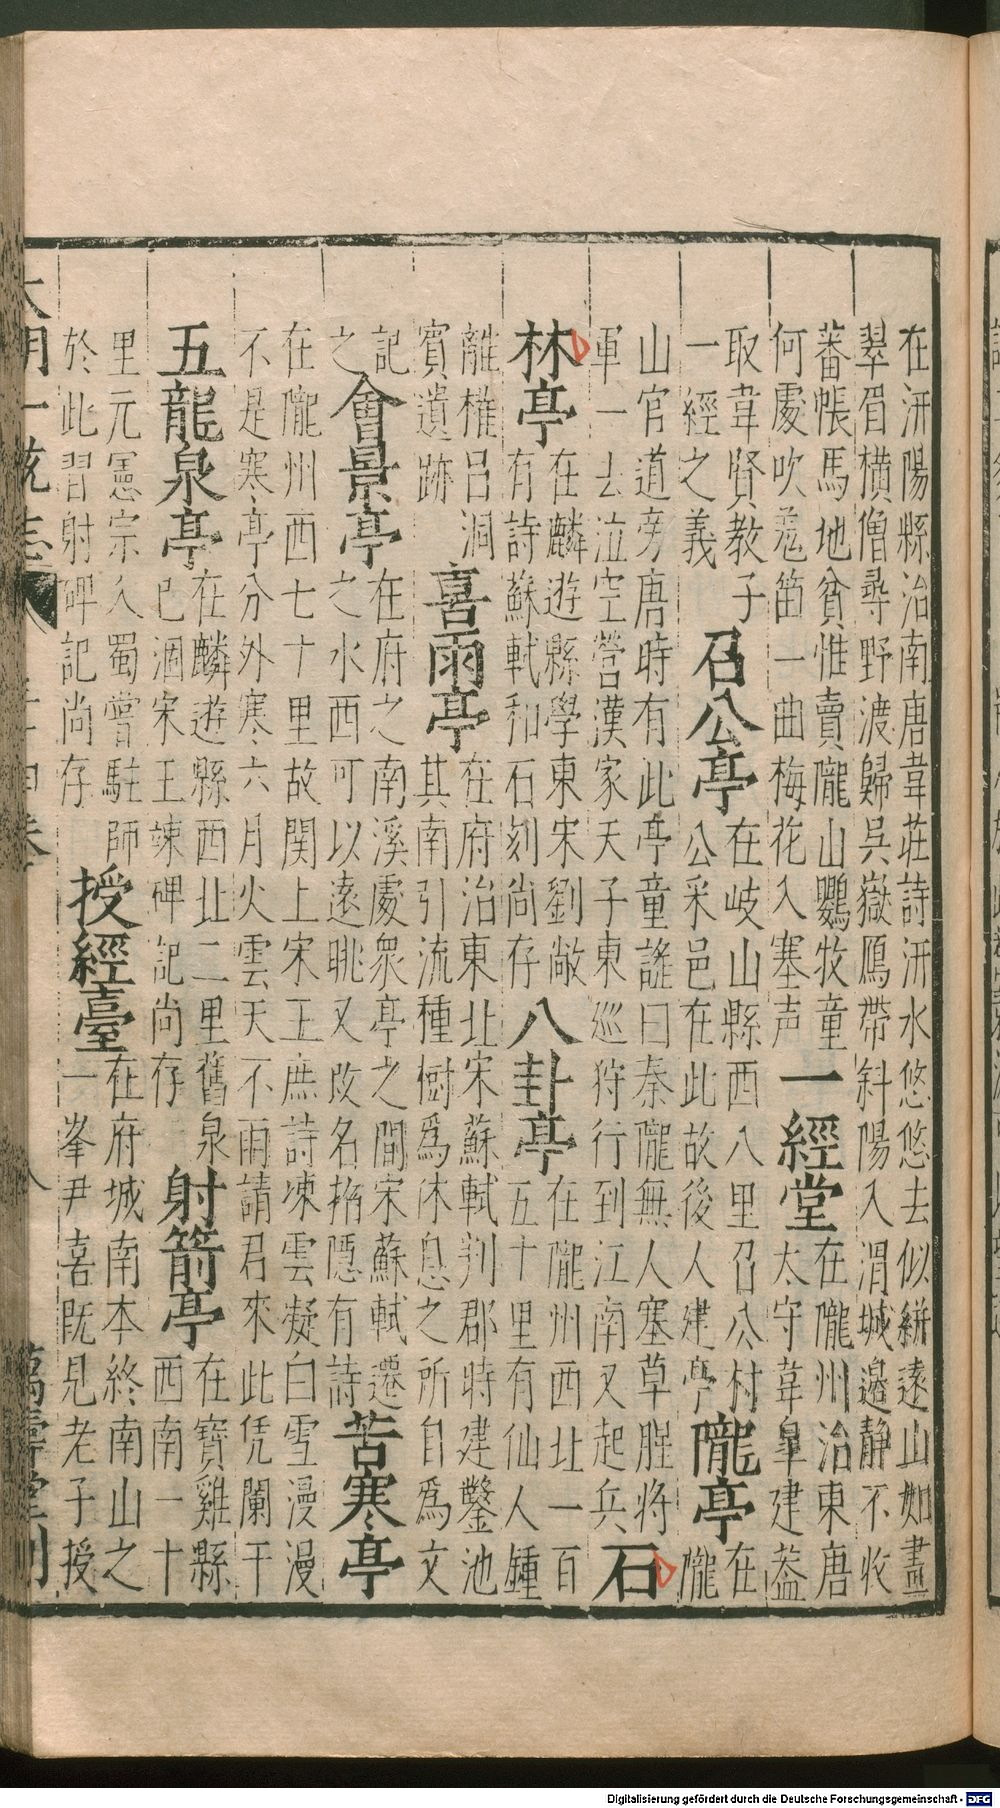 在汧陽縣治南唐韋莊詩汧水悠悠去似絣遠山如畫
翠眉橫僧尋野渡歸吳嶽鴈帶斜陽入渭城邊靜不收
蕃帳馬地貧惟賣隴山鸚牧童一經堂在隴州治東唐
何處吹羌笛一曲梅花入塞声太守韋皐建盖
取韋賢教子召公亭在岐山縣西八里召公村隴亭在
一經之義公采邑在此故後人建亭隴
山官道旁唐時有此亭童謠曰秦隴無人塞草腥将
軍一去泣空營漢家天子東巡狩行到江南又起兵石
林亭在麟遊縣學東宋劉敞八卦亭在隴州西北一百
有詩蘇軾和石刻尚存五十里有仙人鍾
離權呂洞喜雨亭在府治東北宋蘇軾判郡時建鑿池
賓遺跡其南引流種樹爲休息之所自爲文
記會景亭在府之南溪處衆亭之間宋蘇軾遷苦寒亭
之之水西可以遠眺又改名招隱有詩
在隴州西七十里故関上宋王庶詩凍雲凝白雪漫漫
不是寒亭分外寒六月火雲天不雨請君來此凭闌干
五龍泉亭在麟遊縣西北二里舊泉射箭亭在寶雞縣
已涸宋王竦碑記尚存西南一十
里元憲宗入蜀嘗駐師授經臺在府城南本終南山之
於此習射碑記尚存一峯尹喜既見老子授
大明一統志
三十四卷
八
萬壽堂刊
Digitalisierung gefördert durch die Deutsche Forschungsgemeinschaft - DFG